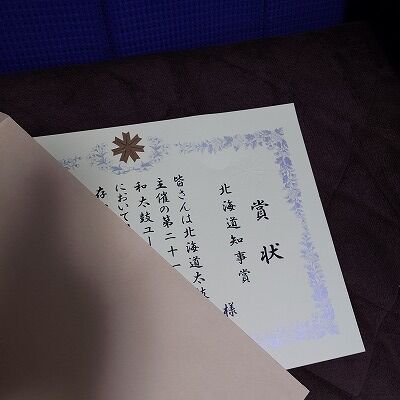 賞状
北海道知事賞
様
皆さんは北海道太鼓
主催の第二十一
和太鼓ユー
において
存